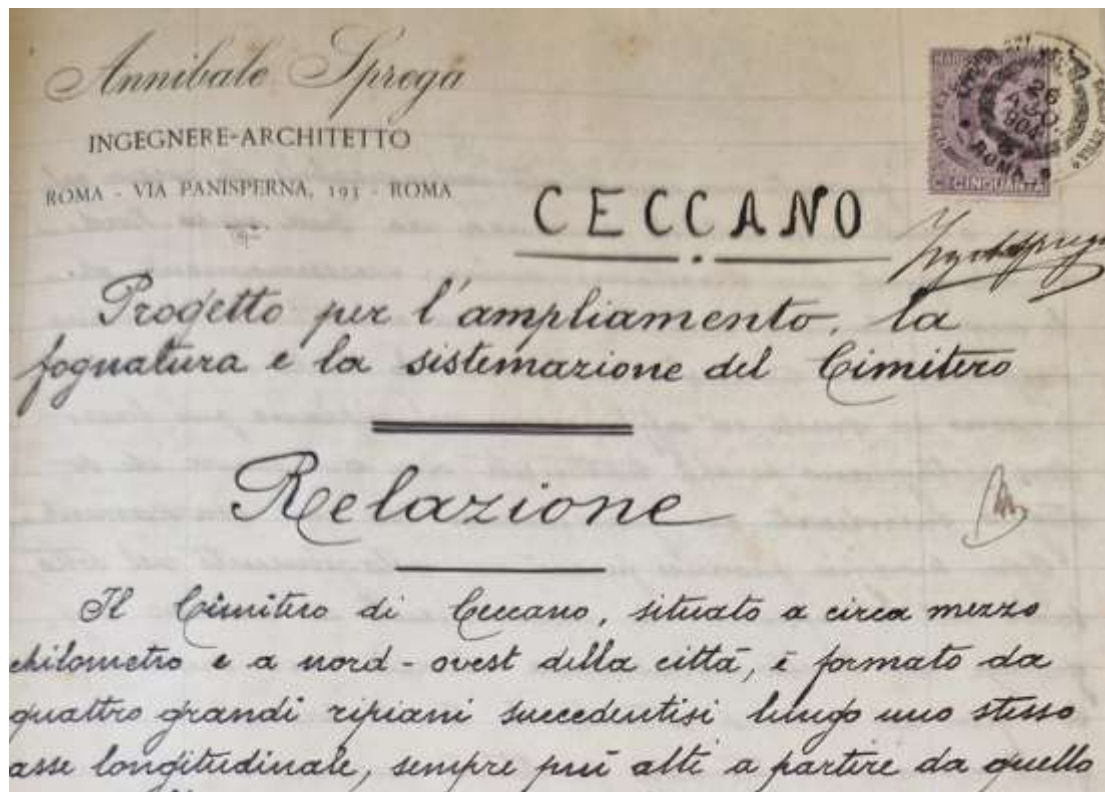 Annibale Sprega
INGEGNERE-ARCHITETTO
ROMA - VIA PANISPERNA, 193 - ROMA
26
AGO
904
ROMA
CINQUANTA
CECCANO
Progetto per l'ampliamento, la
fognatura e la sistemazione del Cimitero
Relazione
Il Cimitero di Ceccano, situato a circa mezzo
chilometro e a nord-ovest della città, è formato da
quattro grandi ripiani succedentisi lungo uno stesso
asse longitudinale, sempre più alti a partire da quello